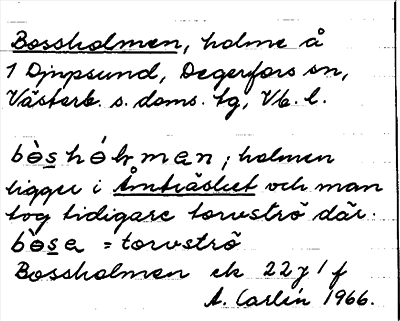 Bossholmen, holme å
1 Djupsund, Degerfors sn,
Västerb. s. doms. tg, Vb. l.
bòs̲hólrman; holmen
ligger i Åmträsket och man
tog tidigare torvströ där.
bòs̲a = torvströ
Bossholmen ek 22 J 1 f
A. Carlin 1966.